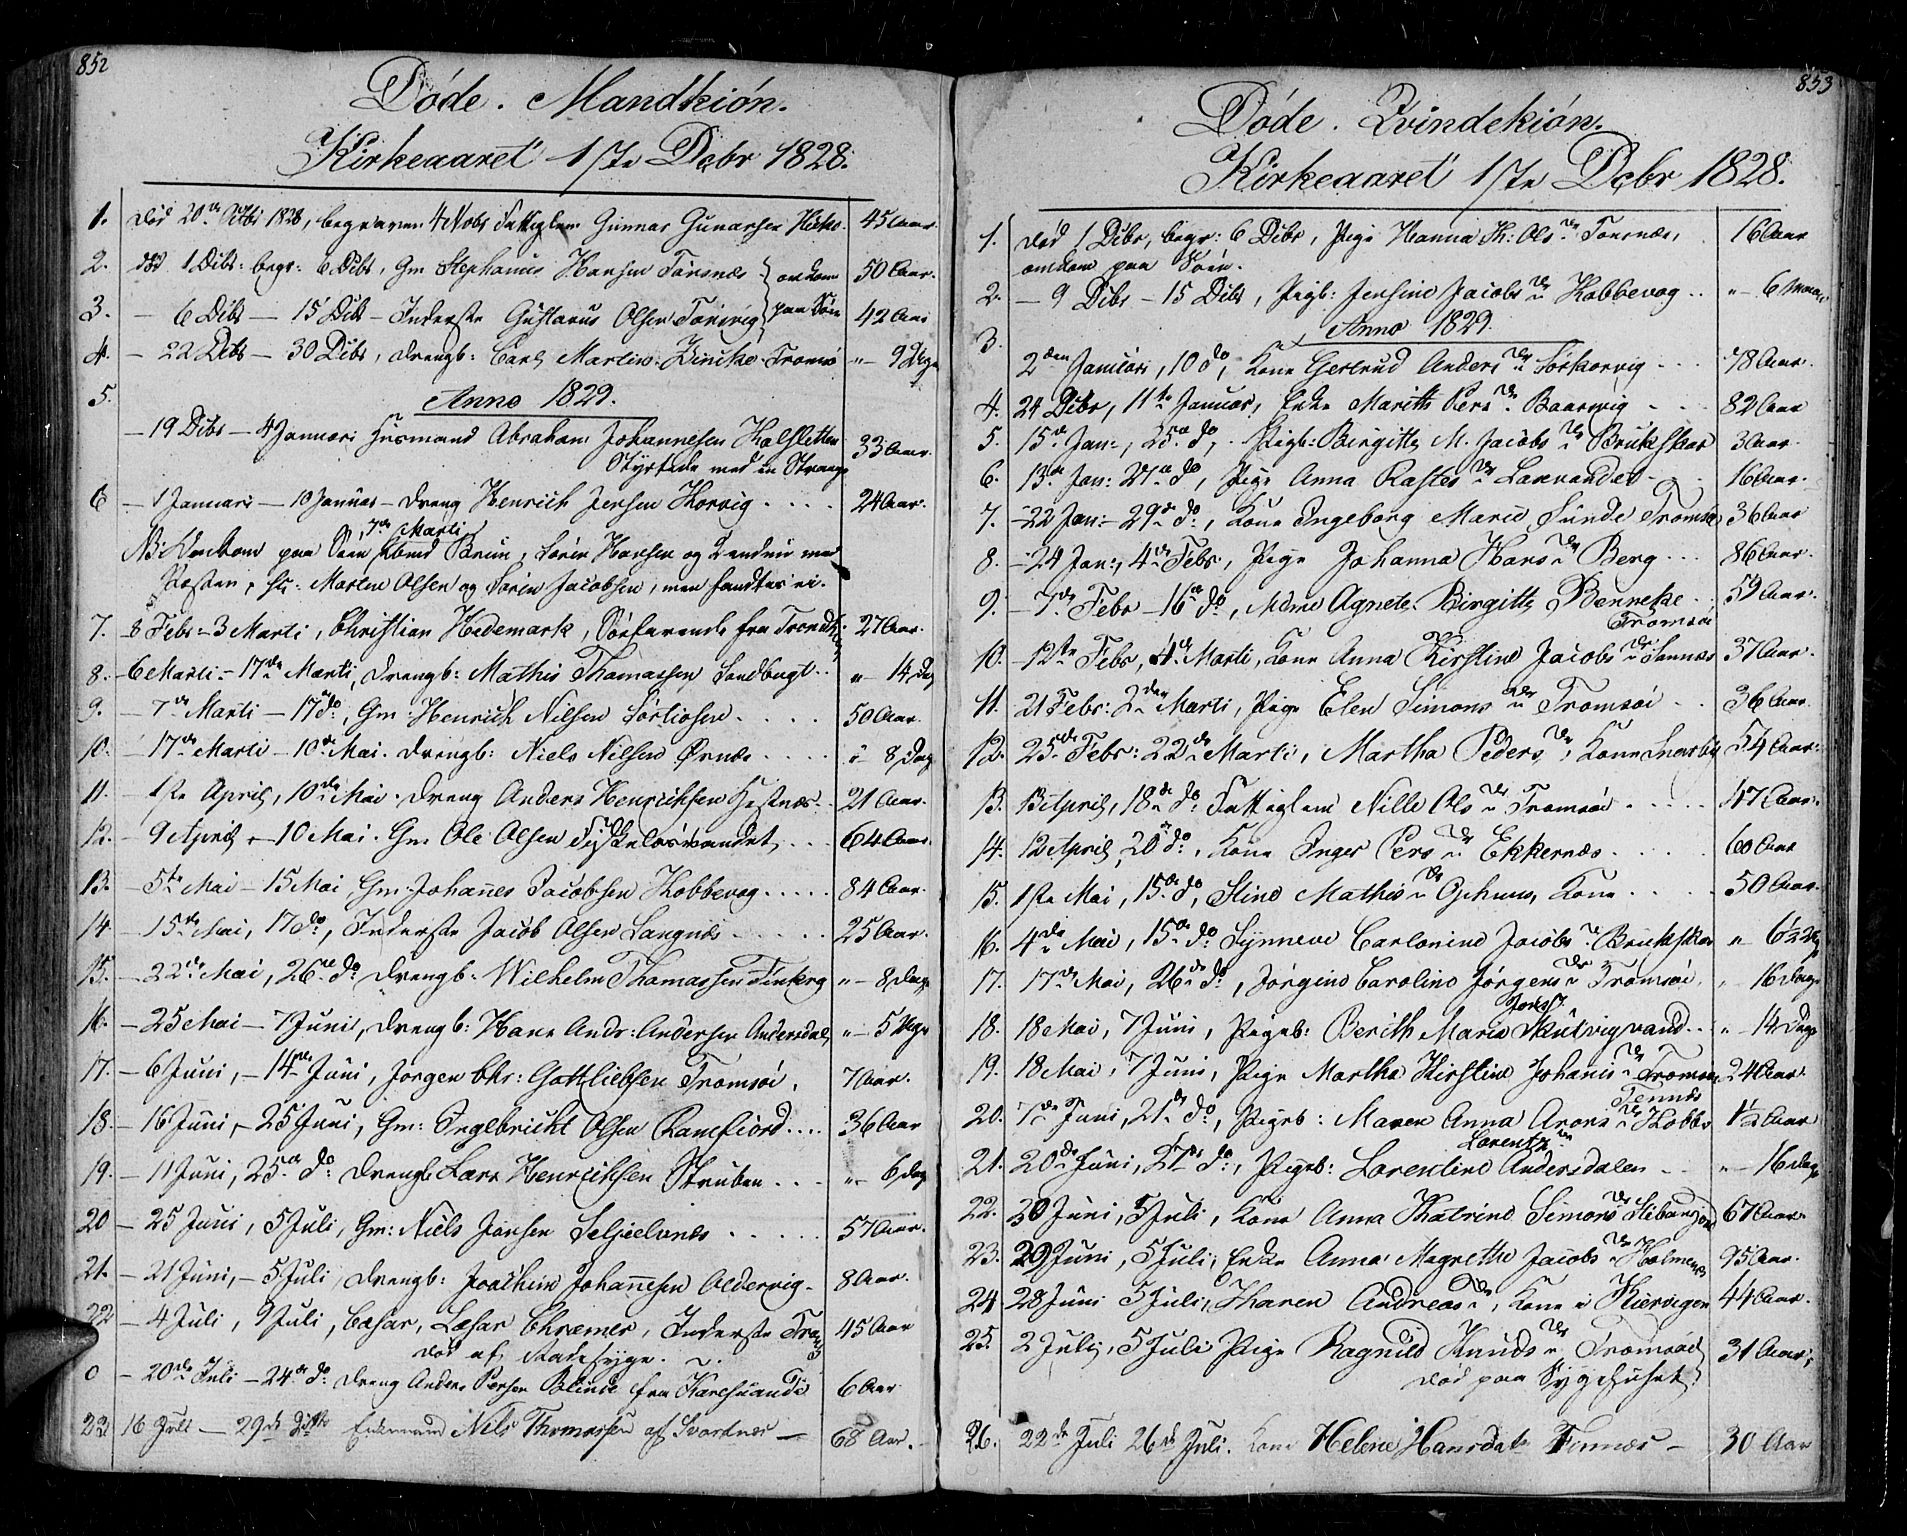 852
Døde. Mandkiøn.
Kirkeaaret 1ste Dcbr 1828.
1. død 20de Octbr 1828, begraven 4 Nobr Fattiglem Gunnar Gunarsen 45 Aar.
2. død 1 Dcbr: begr: 6 Dcbr, Gm Stephanus Hansen Tønsnæs omkom 50 Aar.
3. — 6 Dcbr — 15 Dcbr — Inderste Gustavus Olsen Tønsvig paa Søen 42 Aar
4. — 22 Dcbr — 30 Dcbr, drengb: Carl Martin Tromsø " — 9 Dage
5. Anno 1829.
— 19 Dcbr — 4 Januari Husmand Abraham Johannesen Kalsletten 33 Aar.
Styrtede med en
6 — 1 Januari — 10 Januar — dreng Henrich Jensen Korvig . . . . 24 Aar.
7de Marti
NB: Omkom paa Søen Kbmd Bruun, Søren Hansen og med
Marten Olsen og Søren Jacobsen, men fandtes ei.
7. 8 Febr: — 3 Marti, Christian Hedemark, Søfarende fra Trondhj. 27 Aar.
8. — 6 Marti — 17de Marti, drengb: Mathis Thomassen Sandbugt. . " — 14 Dag
9. — 7de Marti — 17 do, Gm: Henrich Nilsen Sørtiosen. . . . . 50 Aar.
10. — 17de Marti — 10de Mai. drengb: Niels Nilsen Ørnæs . . . . " 8 Dag
11. — 1ste April, 10de Mai. dreng Anders Henrichsen Hestnæs. . 21 Aar.
12. — 9 April, — 10 Mai. Gm Ole Olsen Fiskeløsvandet, . . . 64 Aar.
13. — 5te Mai — 15 Mai Gm: Johanes Jacobsen Kobbevog . . . . . 84 Aar.
14 — 15de Mai, 17 do, Inderste Jacob Olsen Langnæs . . . . . 25 Aar.
15. — 22de Mai, 26de do drengb. Wilhelm Thomassen Finberg " — 8 Dage
16. — 25 Mai — 7 Juni, drengb: Hans Ands: Andersen Andersdal " — 5 Uge
17. — 6 Juni, — 14de Juni, Jørgen Chr: Gottliebsen Tromsøi. 7 Aar.
18. — 16 Juni, — 25 Juni, Gm: Ingebricht Olsen Ramfiord. . . . 36 Aar
19. — 11 Juni, 25de do. drengb Lars Henrichsen Skruben . . . . " — 6 Dag
20 — 25 Juni, 5 Juli, Gm: Niels Jensen Seljelvnes . . . . . 57 Aar.
21. — 21 Juni, — 5 Juli, drengb: Joachim Johanesen Oldervig. 8 Aar.
22 — 4 Juli, 9 Juli, Cæsar, Læsar Chræmer, Inderste Tromsø 45 Aar
død af Radesyge.
0 — 20de Juli — 24de do dreng Anders Persen fra Karesuando 6 Aar
23. 16 Juli — 29de Nils Thomassen af Svordnæs — 68 Aar.
853
Døde. Qvindekiøn.
Kirkeaaret 1ste Dcbr 1828.
1. død 1 Dcbr, begr: 6 Dcbr, Pige Hanna Th: Olsdr Tønsnæs, 16 Aar
omkom paa Søen.
2. — 9 Dcbr — 15 Dcbr, Pigb: Jensine Jacobsdr Kobbevog . . " — 6
Anno 1829.
3. 2den Januari, 10 do, Kone Gertrud Andersdr Sørkorvig . . . 78 Aar.
4. 24 Dcbr, 11te Januar, Enke Marith Persdr. Baarsvig — . . 82 Aar
5. 15de Jan:, 25de do, Pigb: Birgitte M. Jacobsdr Brukskar 3 Aar.
6. 13de Jan: 27de do, Pige Anna Rastesdr Laxvandet . . 16 Aar.
7. — 22 Jan: — 29de do, Kone Ingeborg Marie Sunde Tromsø 36 Aar
8. — 24 Jan:, 4de Febr, Pige Johanna Hansdr Berg . . . 86 Aar.
9. — 7de Febr — 16de do, Mdme Agnete Birgitte Benneke . . 59 Aar.
Tromsøi
10. — 12te Febr, 4de Marti, Kone Anna Kirstine Jacobsdr Sannæs 37 Aar.
11. 21 Febr: 2den Marti, Pige Elen Simonsdr Tromsøi . . 36 Aar.
12. 25de Febr: 22de Marti, Martha Pedersdr, Kone 54 Aar.
13. 13 April, 18de do. Fattiglem Nille Olsdr Tromsøe . . . . 47 Aar.
14. 12 April, 20de do, Kone Inger Persdr Ekkernæs. . . . 60 Aar
15. 1ste Mai, 15de do, Stine Mathisdr Kone . . . . 50 Aar.
16. 4de Mai, 15de do Synneve Carlonine Jacobsdr. Brukskar " 6½
17. 17de Mai, 26de do, Jørgine Caroline Jørgensdr Tromsøi, " — 16 Dage
18. 18 Mai, 7 Juni, Pigeb: Berith Maria Skulvigvand. . " — 14 Dage
19. 18 Mai, 7 Juni, Pige Martha Kirstine Johansdr Tromsøe, 24 Aar.
Tennæs
20. 7de Juni, 21de do, Pigeb: Maren Anna Aronsdr Kobbe 1½ Aar
Lorentzdr
21. 20de Juni, 27de do, Pigeb: Lorentine Andersdalen — . . " — 16 Dage
22. 30 Juni, 5 Juli, Kone Anna Katrine Simonsdr 67 Aar.
23. 29 Juni, 5 Juli, Enke Anna Magrethe Jacobsdr Holmenes 95 Aar.
24 28 Juni 5 Juli, Karen Andreasdr, Kone i Kiervigen 44 Aar.
25. 2 Juli, 5 Juli Pige Ragnild Knudsdr Tromsøe 31 Aar,
død paa Sygehuset
26. 22de Juli 26de Juli. Kone Helene Hansdatr Tennæs — 30 Aar